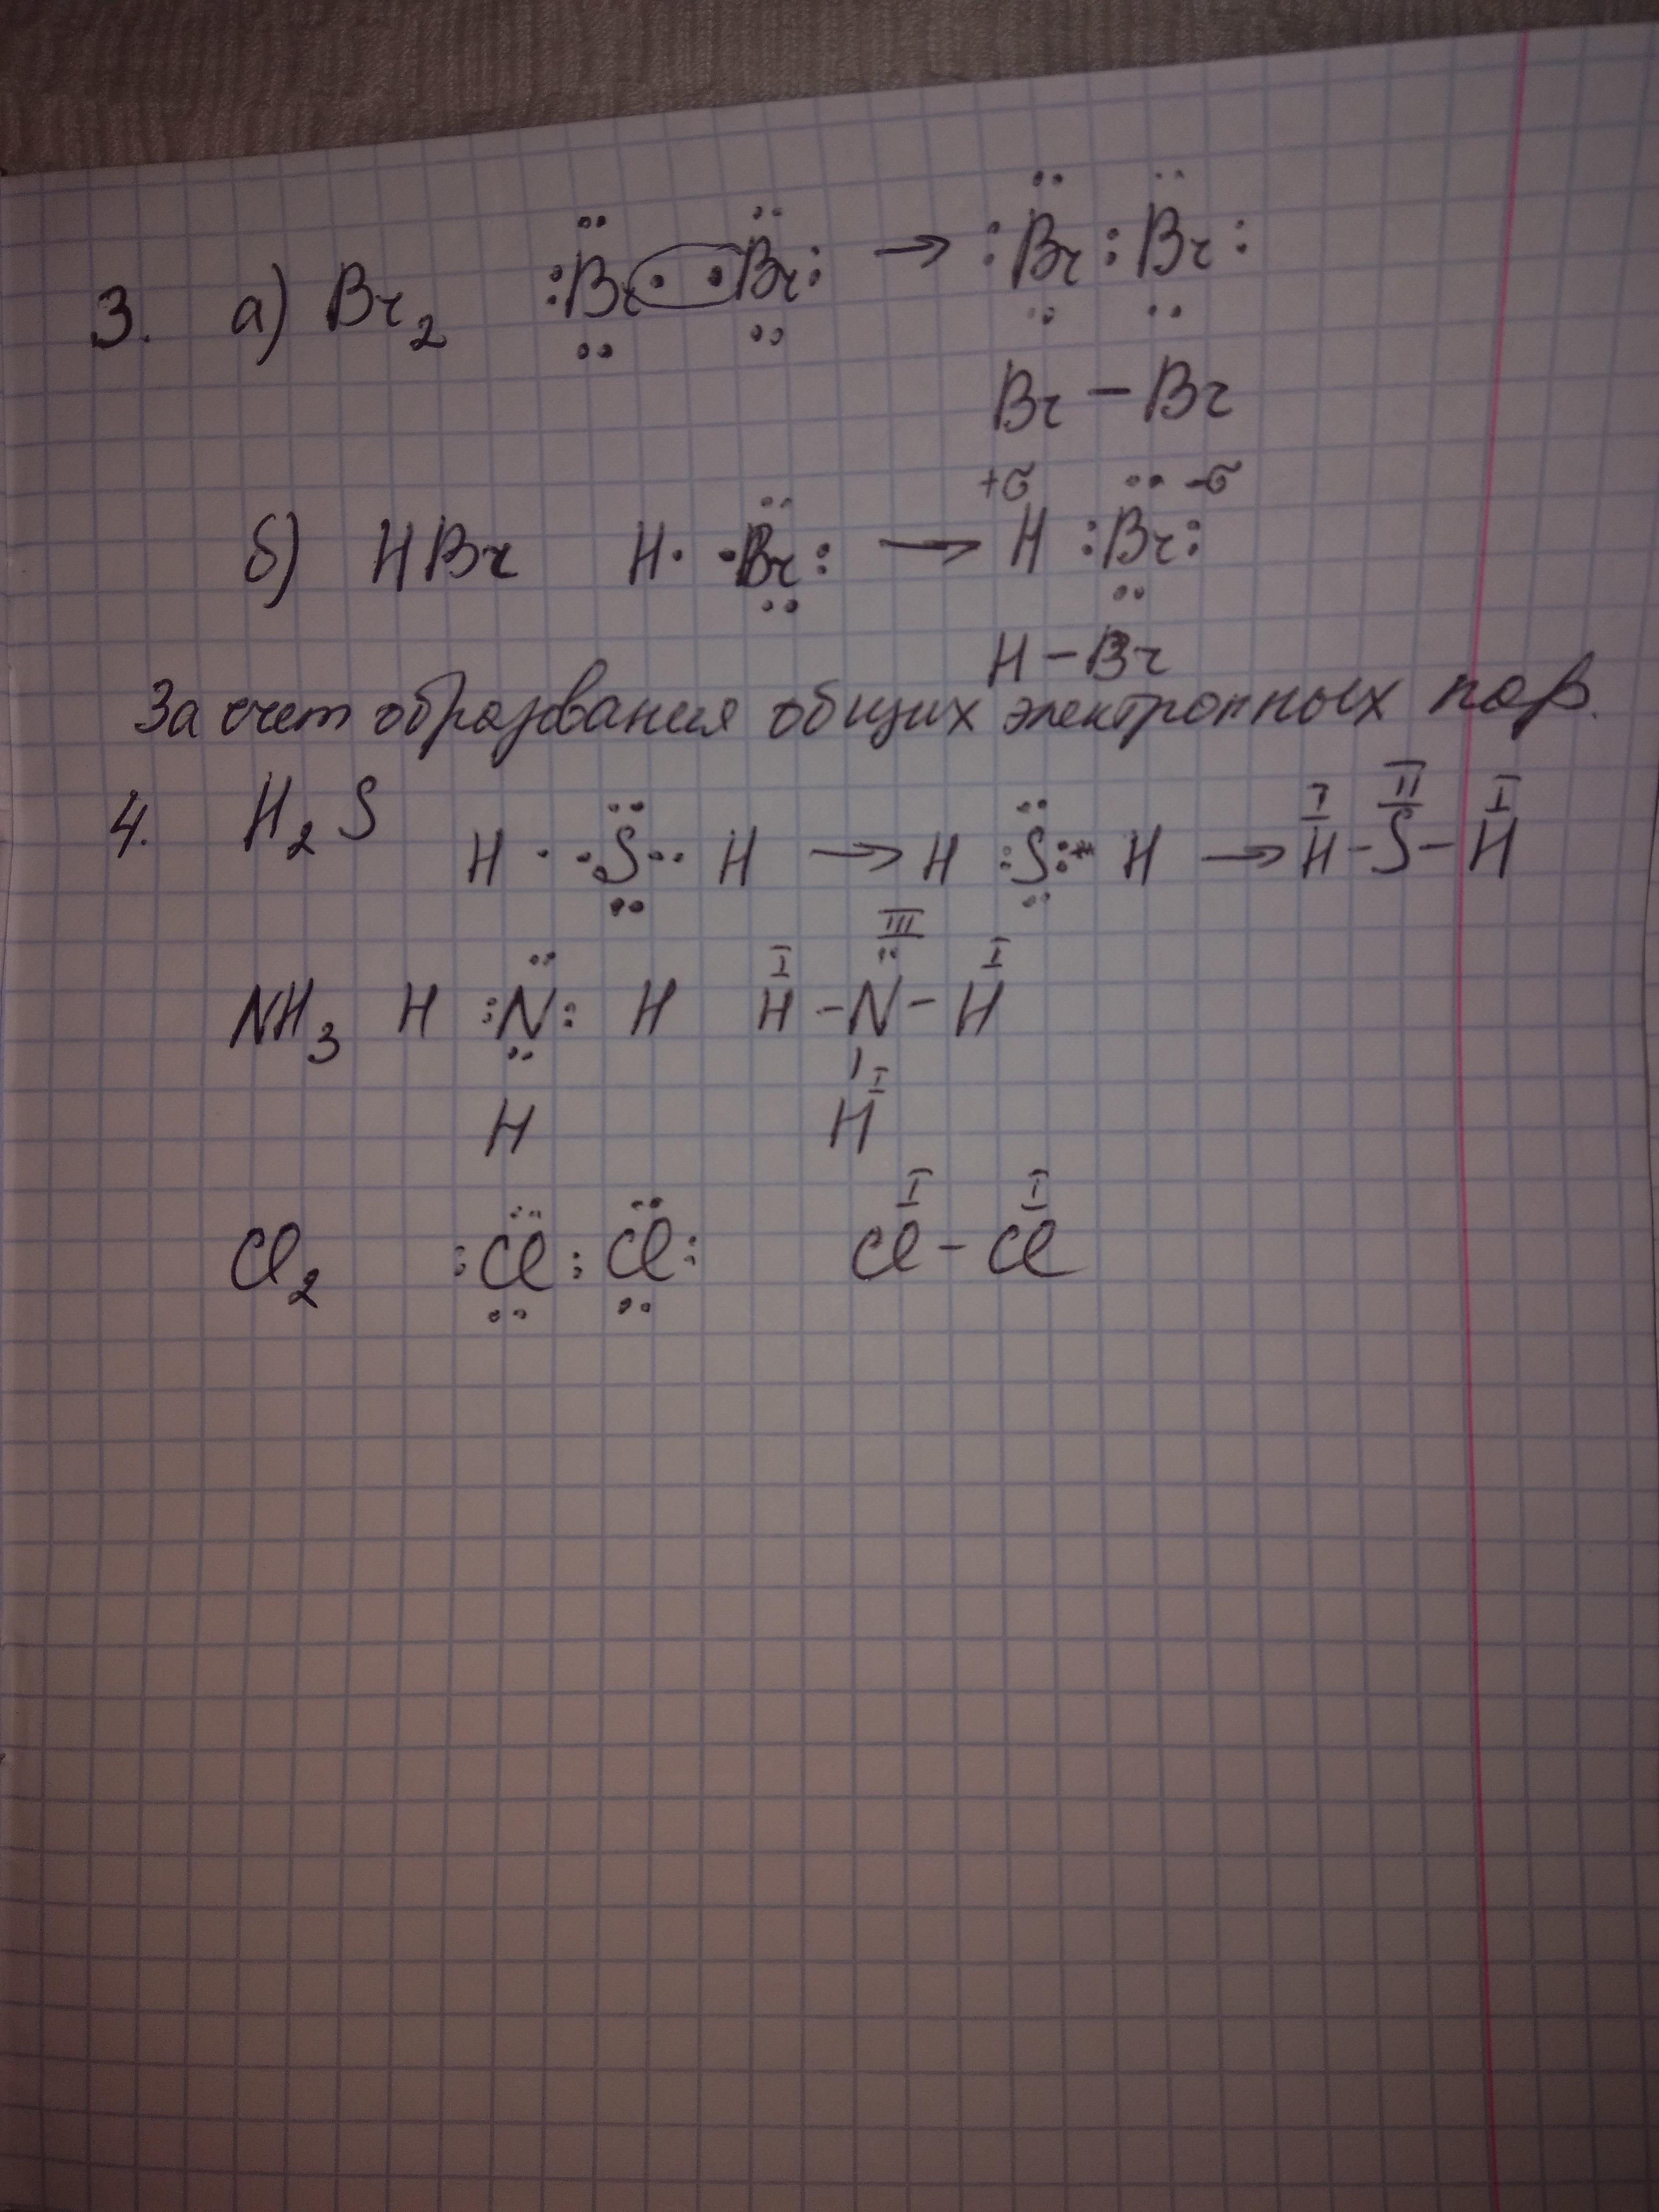 3. а) Br2 :Br· ·Br: → :Br:Br:
Br – Br
+σ -σ
б) HBr H· ·Br: → H :Br:
H – Br
За счет образования общих электронных пар.
I II I
4. H2S H · ·S·· H → H :S: H → H - S - H
III
I I
NH3 H :N: H H - N - H
I
H H
I I
Cl2 :Cl:Cl: Cl - Cl